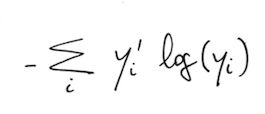 -∑_i y_i' log(y_i)